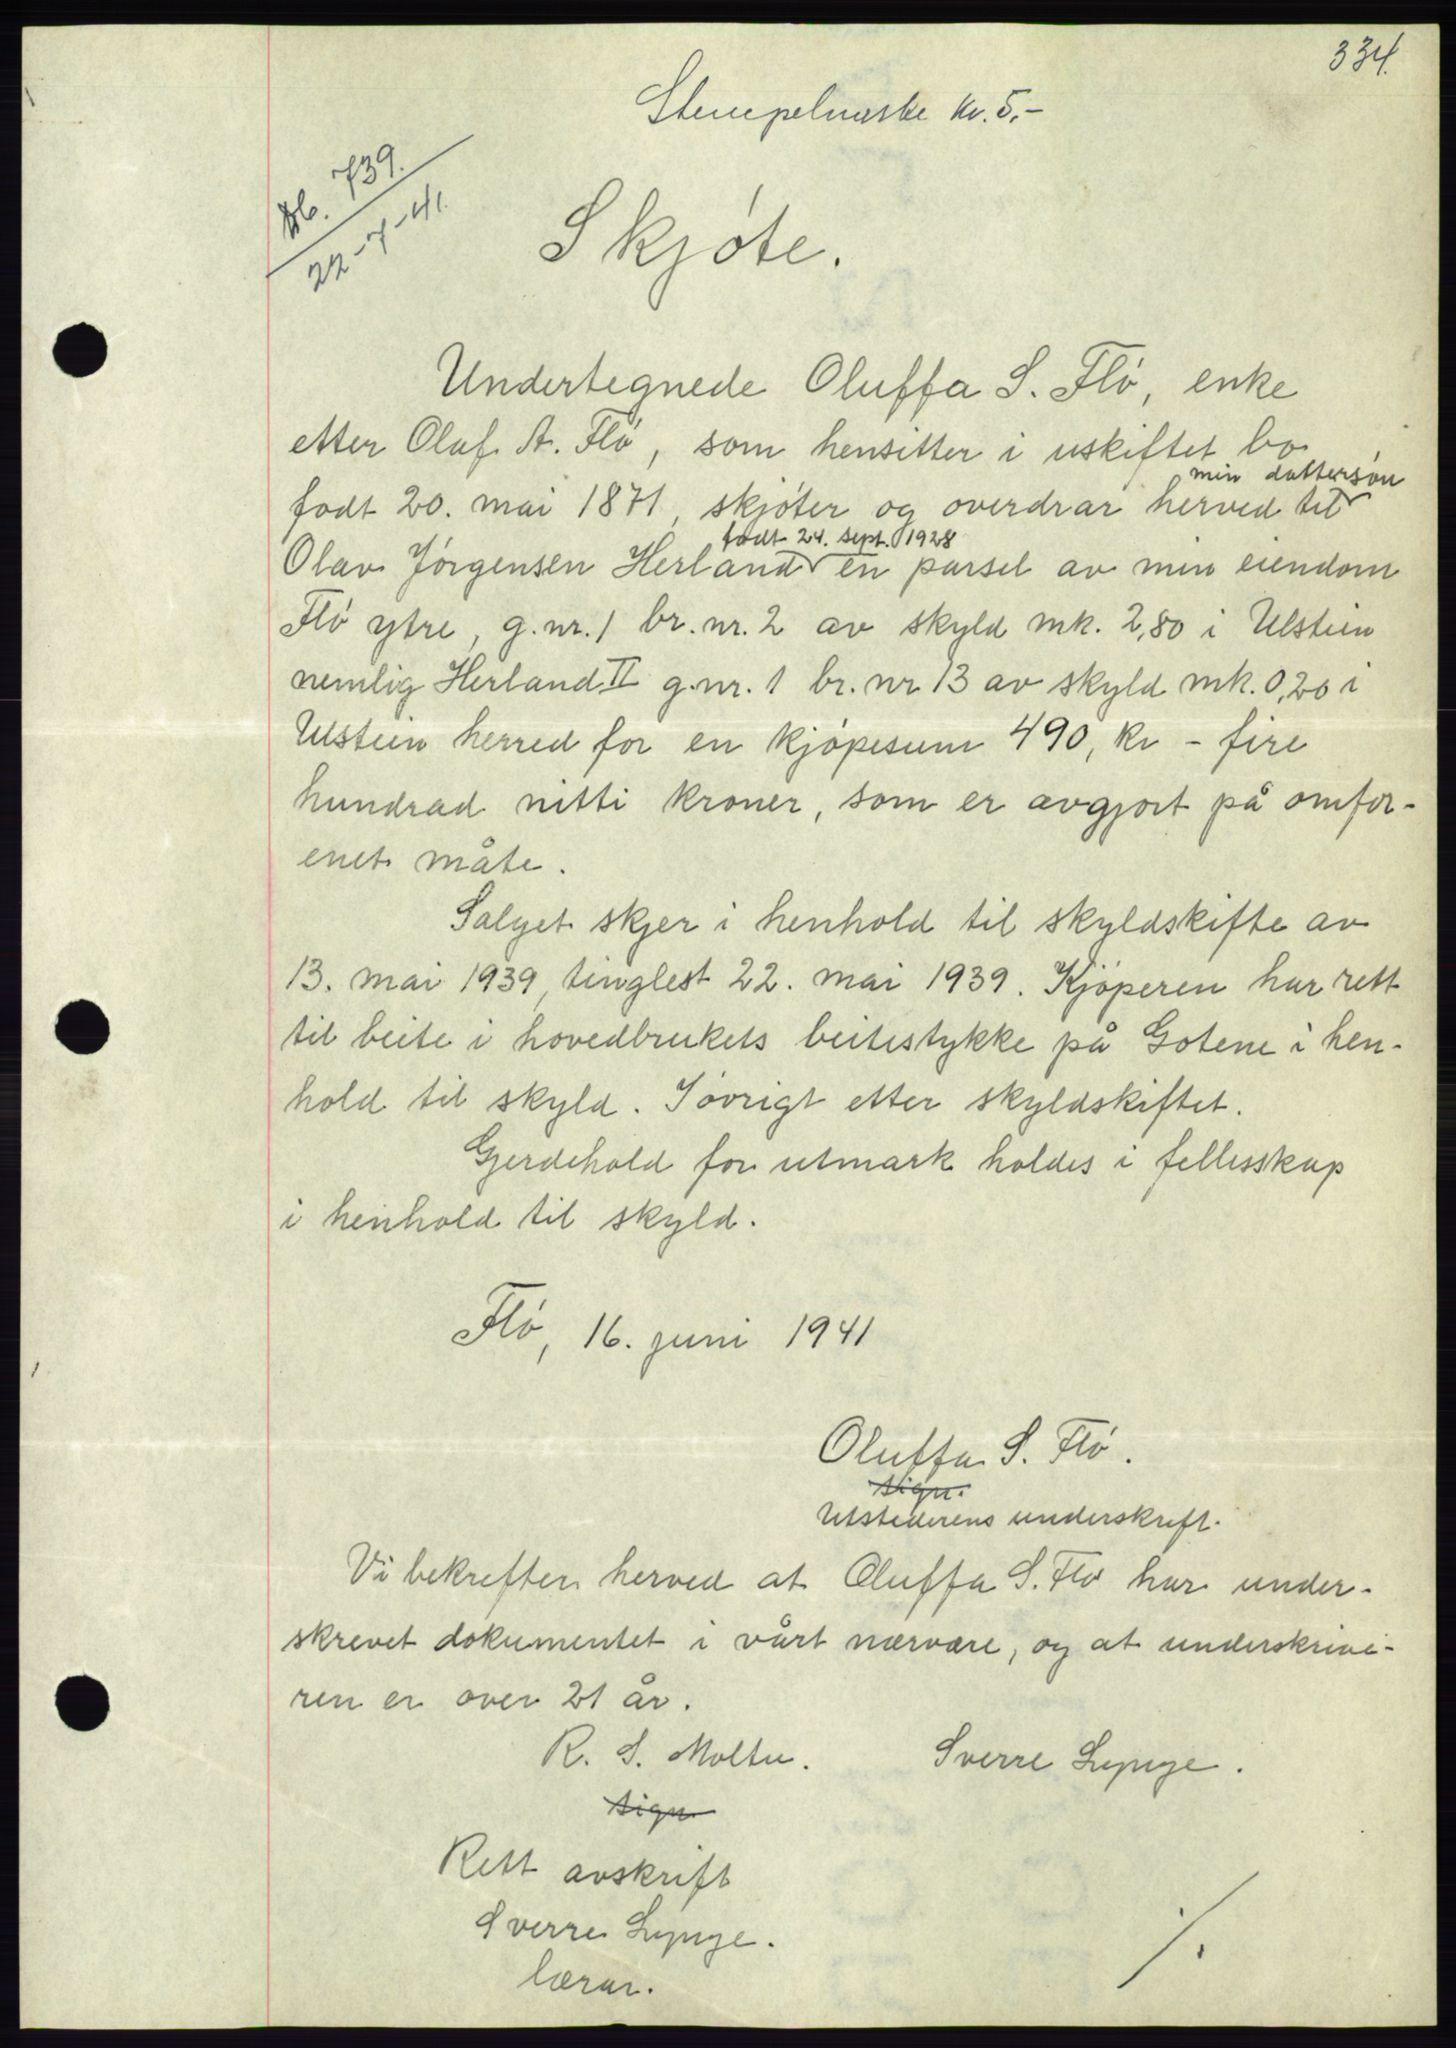 334.
Stempelmerke kr. 5.-
Db. 739.
22-7-41.
Skjöte.
Undertegnede Oluffa S. Flö, enke
etter Olaf A. Flö, som hensitter i uskiftet bo
min dattersön
födt 20. mai 1871, skjöter og overdrar herved til
födt 24. sept. 1928
Olav Jörgensen Herland en parsel av min eiendom
Flö ytre, g.nr. 1 br.nr. 2 av skyld mk. 2,80 i Ulstein
nemlig Herland II g.nr. 1 br.nr 13 av skyld mk. 0,20 i
Ulstein herred for en kjöpesum 490, kr - fire
hundrad nitti kroner, som er avgjort på omfor-
enet måte.
Salget skjer i henhold til skyldskifte av
13. mai 1939, tinglest 22. mai 1939. Kjöperen har rett
til beite i hovedbrukets beitestykke på Gotene i hen-
hold til skyld. I övrigt etter skyldskiftet.
Gjerdehold for utmark holdes i fellesskap
i henhold til skyld.
Flö, 16. juni 1941
Oluffa S. Flö.
sign.
Utstederens underskrift.
Vi bekrefter herved at Oluffa S. Flö har under-
skrevet dokumentet i vårt nærvære, og at underskrive-
ren er over 21 år.
R. S. Moltu. Sverre Lynge.
sign
Rett avskrift
Sverre Lynge.
lærar.